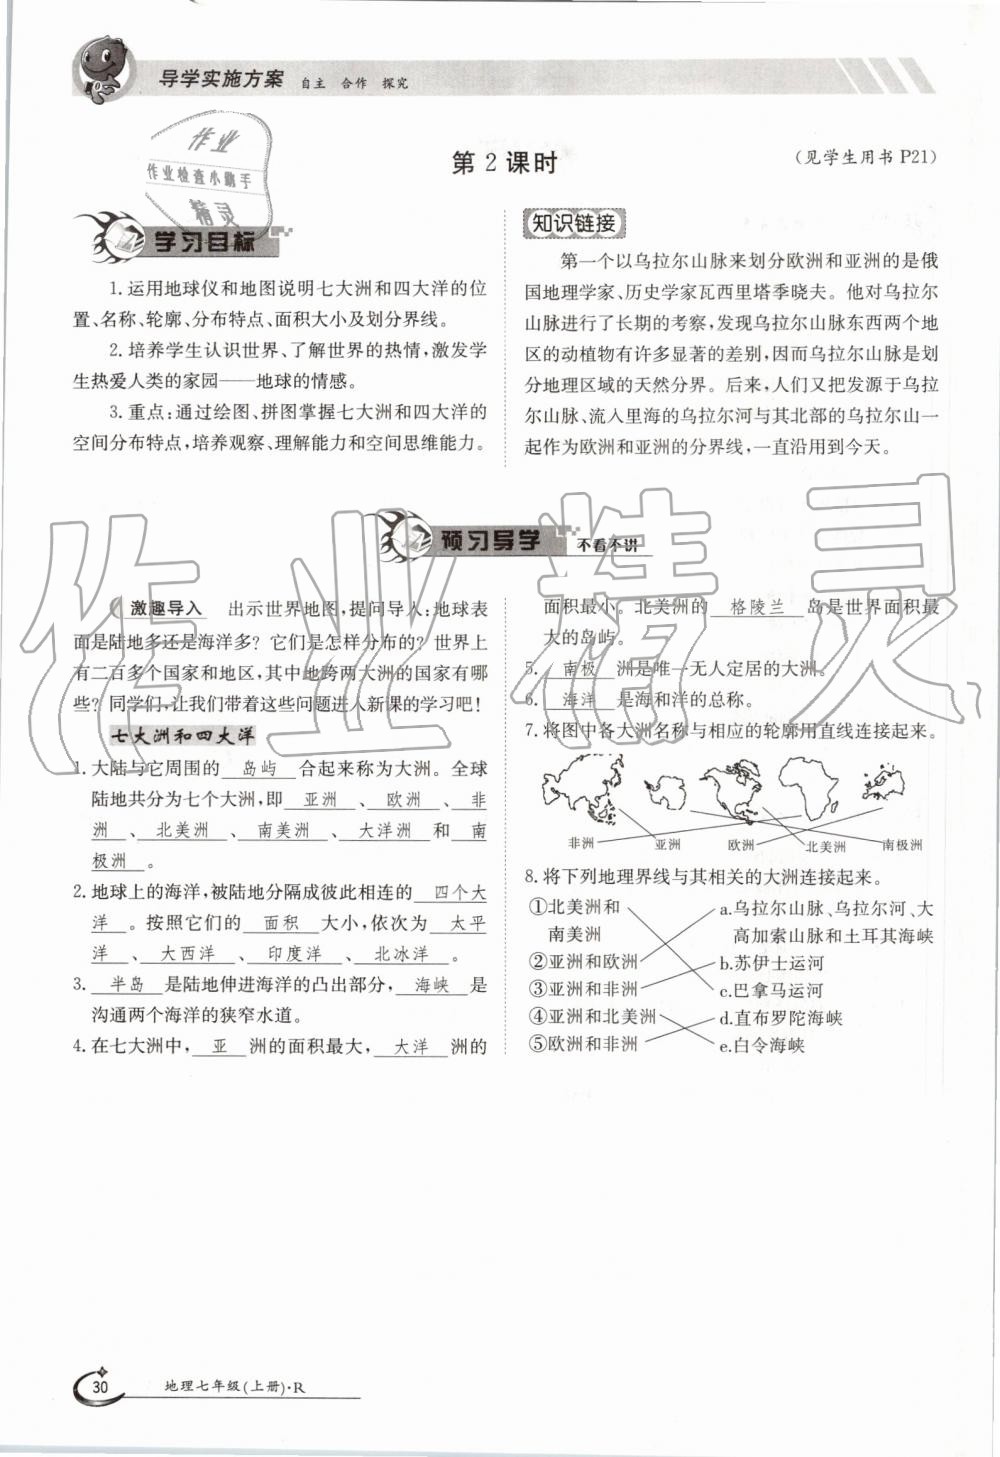 导学实施方案 自主 合作 探究
作业
作业检查小助手
精灵
第2课时
(见学生用书P21)
学习目标
1.运用地球仪和地图说明七大洲和四大洋的位
置、名称、轮廓、分布特点、面积大小及划分界线。
2.培养学生认识世界、了解世界的热情,激发学
生热爱人类的家园——地球的情感。
3.重点:通过绘图、拼图掌握七大洲和四大洋的
空间分布特点,培养观察、理解能力和空间思维能力。
知识链接
第一个以乌拉尔山脉来划分欧洲和亚洲的是俄
国地理学家、历史学家瓦西里塔季晓夫。他对乌拉尔
山脉进行了长期的考察,发现乌拉尔山脉东西两个地
区的动植物有许多显著的差别,因而乌拉尔山脉是划
分地理区域的天然分界。后来,人们又把发源于乌拉
尔山脉、流入里海的乌拉尔河与其北部的乌拉尔山一
起作为欧洲和亚洲的分界线,一直沿用到今天。
作业精灵
预习导学 不看不讲
激趣导入 出示世界地图,提问导入:地球表
面是陆地多还是海洋多?它们是怎样分布的?世界上
有二百多个国家和地区,其中地跨两大洲的国家有哪
些?同学们,让我们带着这些问题进入新课的学习吧!
七大洲和四大洋
1.大陆与它周围的 岛屿 合起来称为大洲。全球
陆地共分为七个大洲,即 亚洲 、 欧洲 、 非
洲 、 北美洲 、 南美洲 、 大洋洲 和 南
极洲 。
2.地球上的海洋,被陆地分隔成彼此相连的 四个大
洋 。按照它们的 面积 大小,依次为 太平
洋 、 大西洋 、 印度洋 、 北冰洋 。
3. 半岛 是陆地伸进海洋的凸出部分, 海峡 是
沟通两个海洋的狭窄水道。
4.在七大洲中, 亚 洲的面积最大, 大洋 洲的
面积最小。北美洲的 格陵兰 岛是世界面积最
大的岛屿。
5. 南极 洲是唯一无人定居的大洲。
6. 海洋 是海和洋的总称。
7.将图中各大洲名称与相应的轮廓用直线连接起来。
非洲 亚洲 欧洲 北美洲 南极洲
8.将下列地理界线与其相关的大洲连接起来。
①北美洲和 a.乌拉尔山脉、乌拉尔河、大
南美洲 高加索山脉和土耳其海峡
②亚洲和欧洲 b.苏伊士运河
③亚洲和非洲 c.巴拿马运河
④亚洲和北美洲 d.直布罗陀海峡
⑤欧洲和非洲 e.白令海峡
30 地理七年级(上册)·R